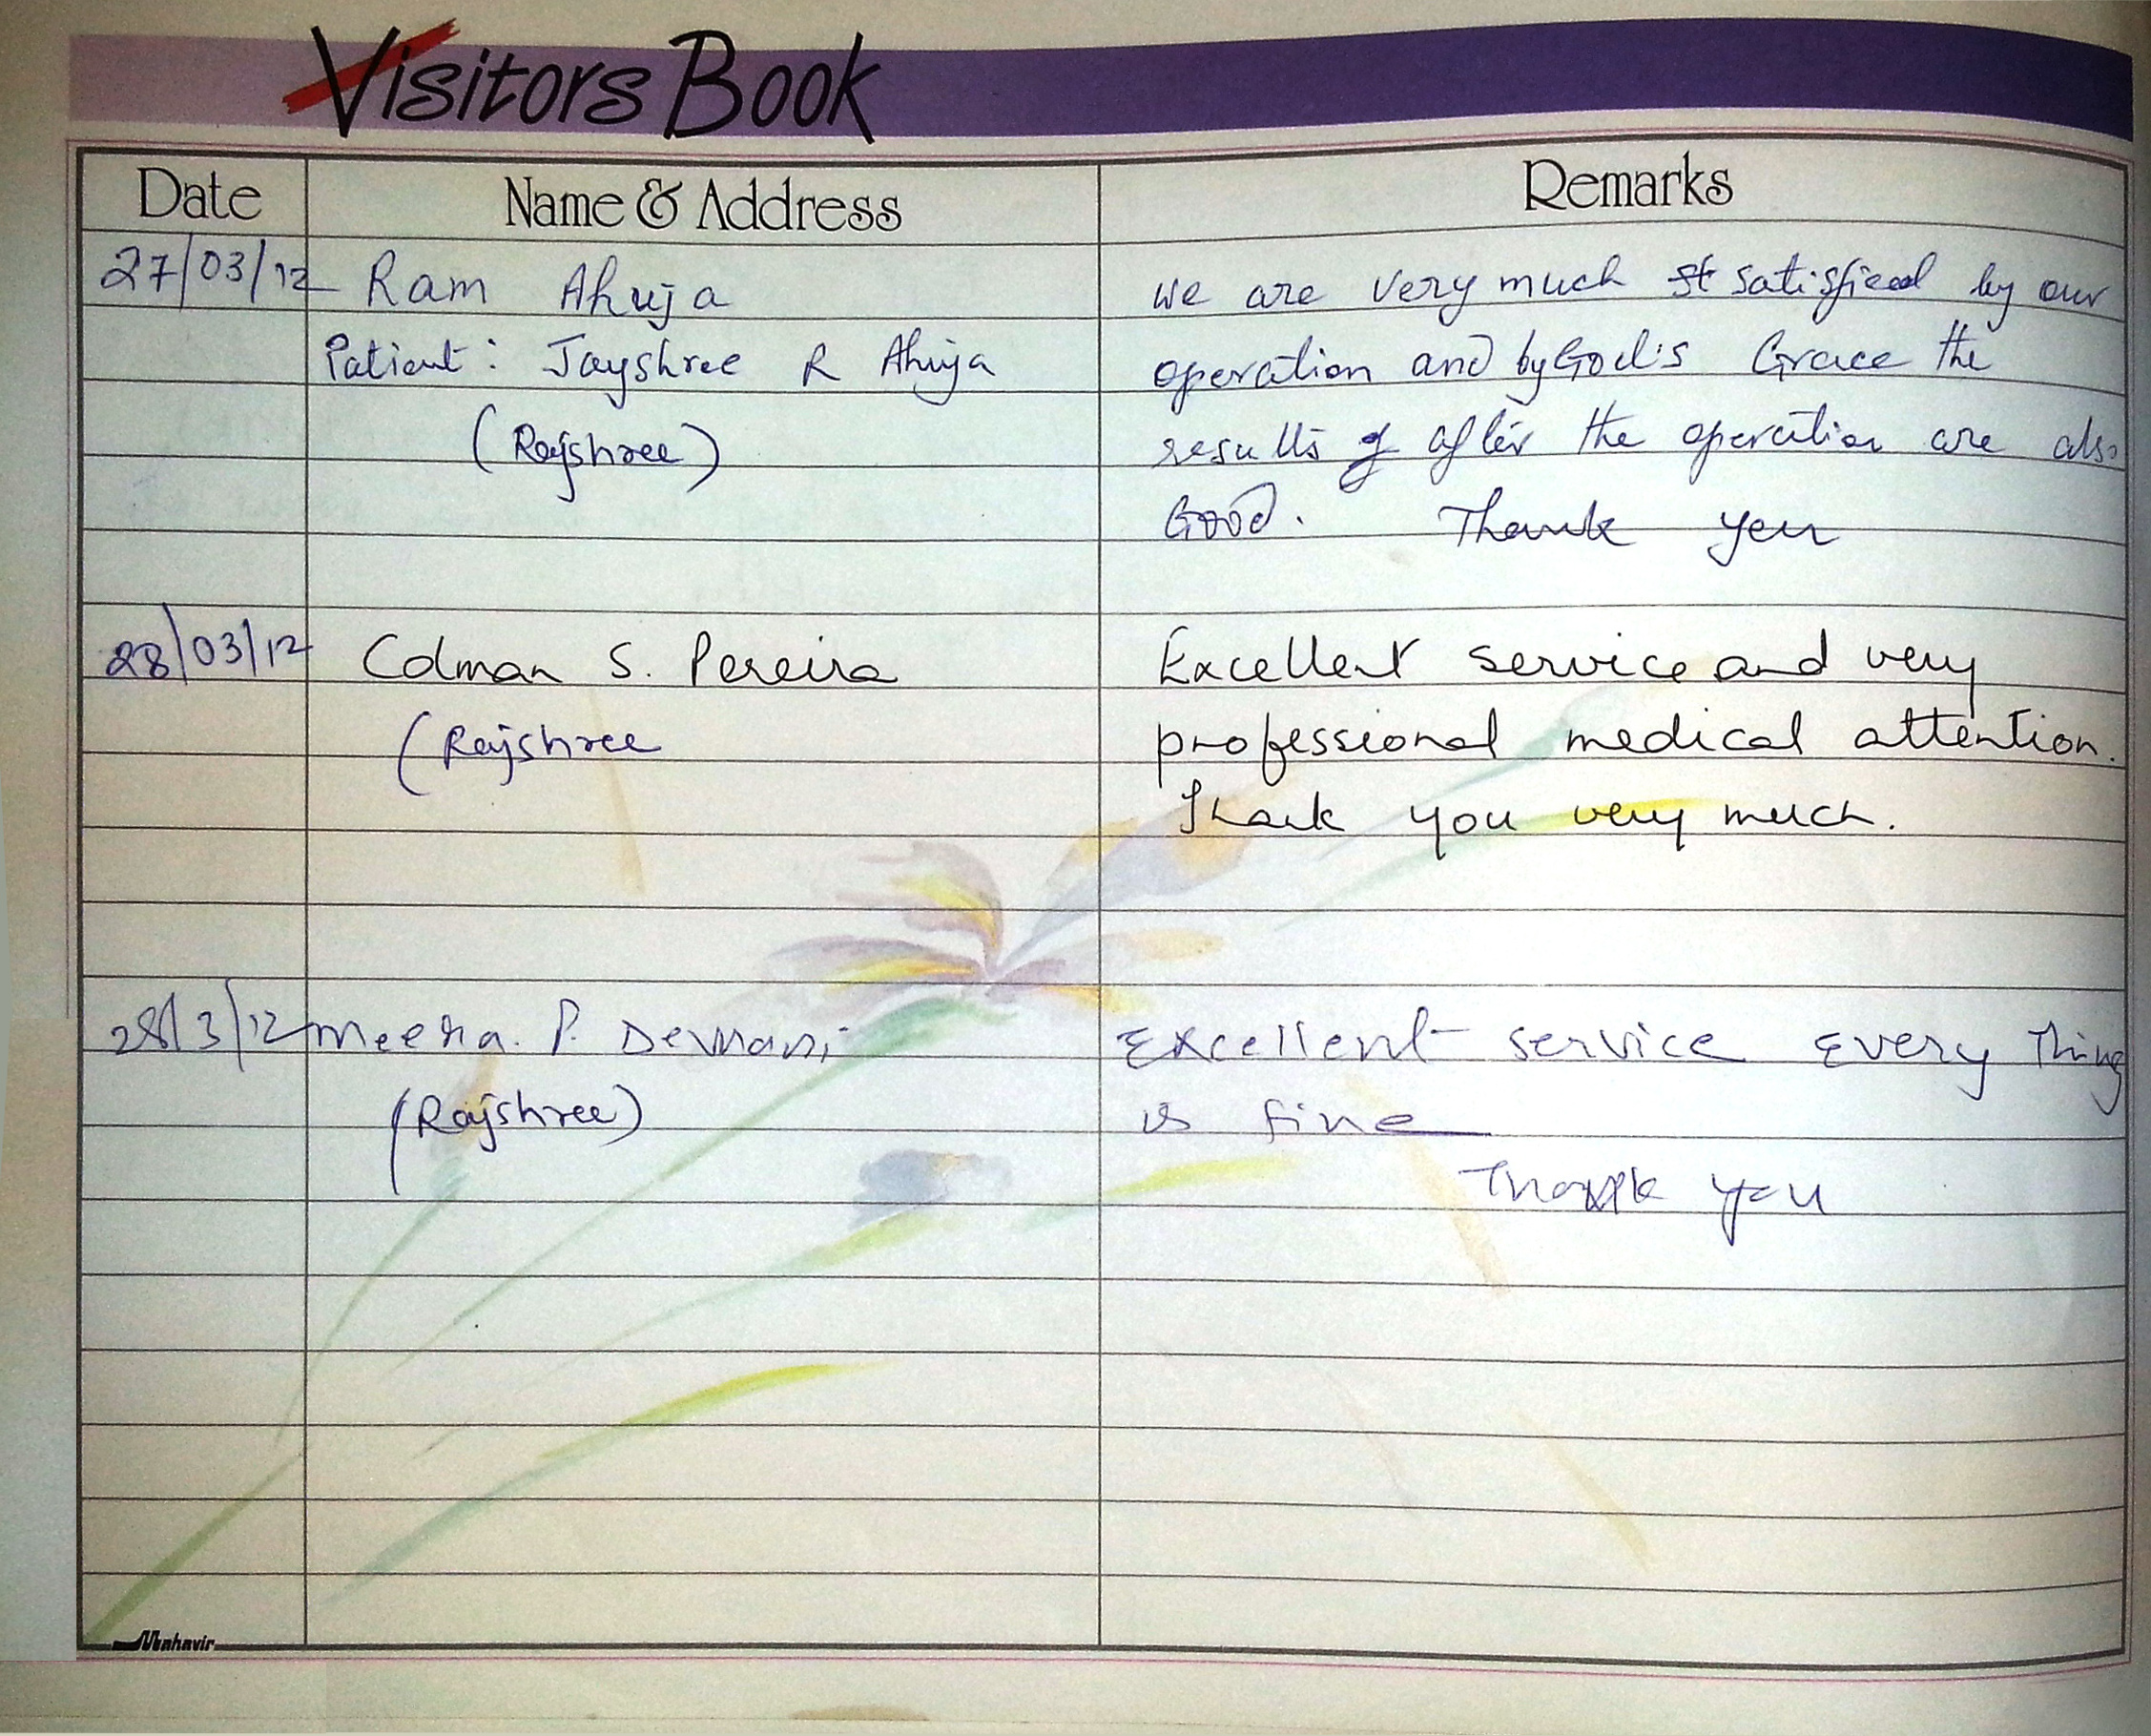 Visitors Book
Date Name & Address Remarks
27/03/12 Ram Ahuja we are very much st satisfied by our
Patient: Jayshree R Ahuja operation and by God's Grace the
(Rajshree) results of after the operation are also
Good. Thank you
28/03/12 Colman S. Pereira Excellent service and very
(Rajshree professional medical attention.
Thank you very much.
28/3/12 Meena. P. Devnani Excellent service Every Thing
is fine
Thank you
Mahavir